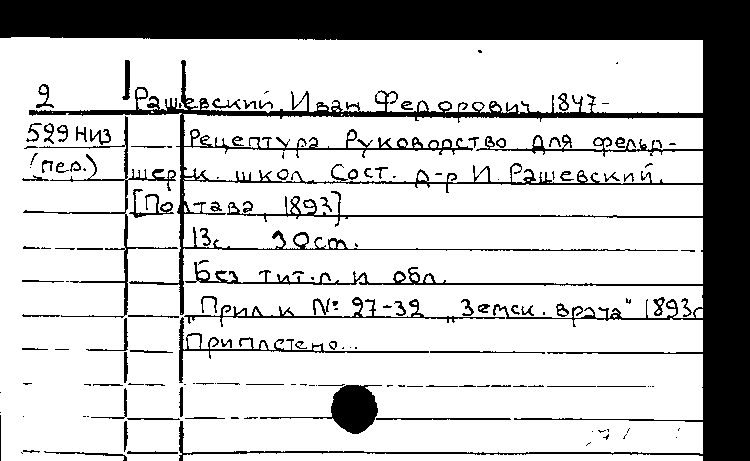 2 Рашевский, Иван Федорович, 1847-
529 низ Рецептура. Руководство для фельд-
(пер.) шерск. школ. Сост. д-р И. Рашевский.
[Полтава, 1893].
13с. 30см.
Без тит.л. и обл.
"Прил. к № 27-32 "Земск. врача" 1893г
Приплетено...